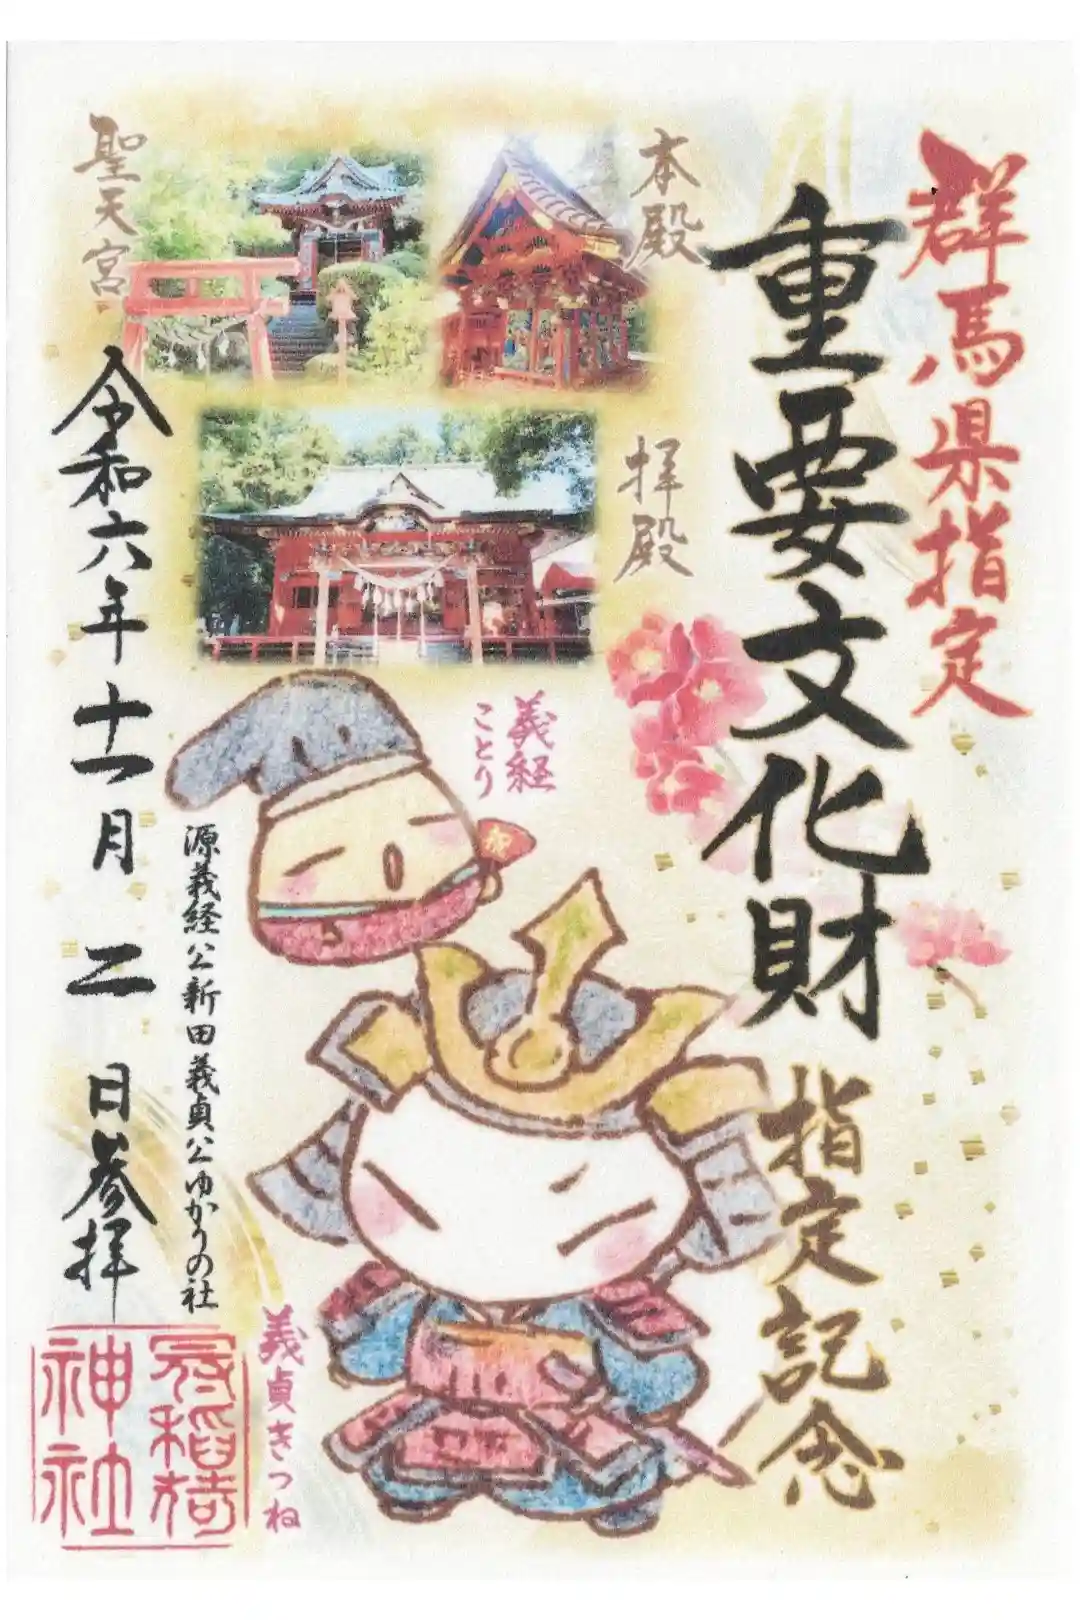 群馬県指定
重要文化財
指定記念
本殿
拝殿
聖天宮
義経
ことり
祝
源義経公新田義貞公ゆかりの社
義貞きつね
令和六年十一月二日参拝
冠稲荷
神社